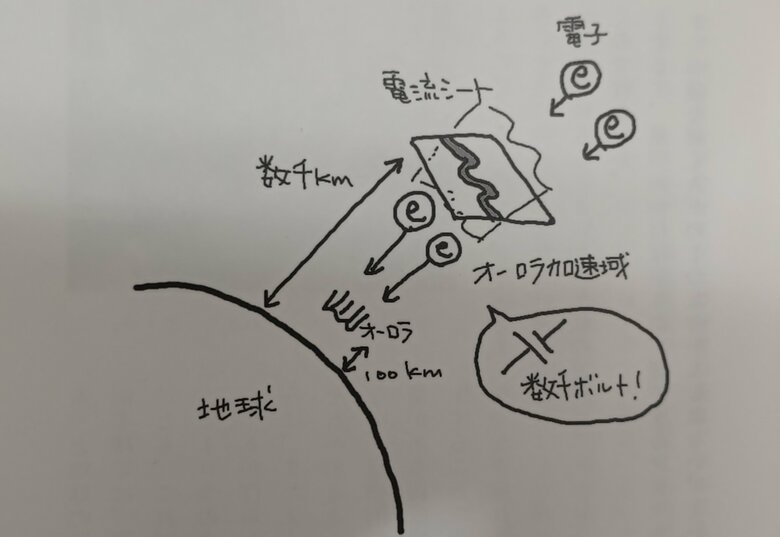 電子
e
電流シート
e
数千km
e
e
オーロラ加速域
オーロラ
100km
数千ボルト!
地球